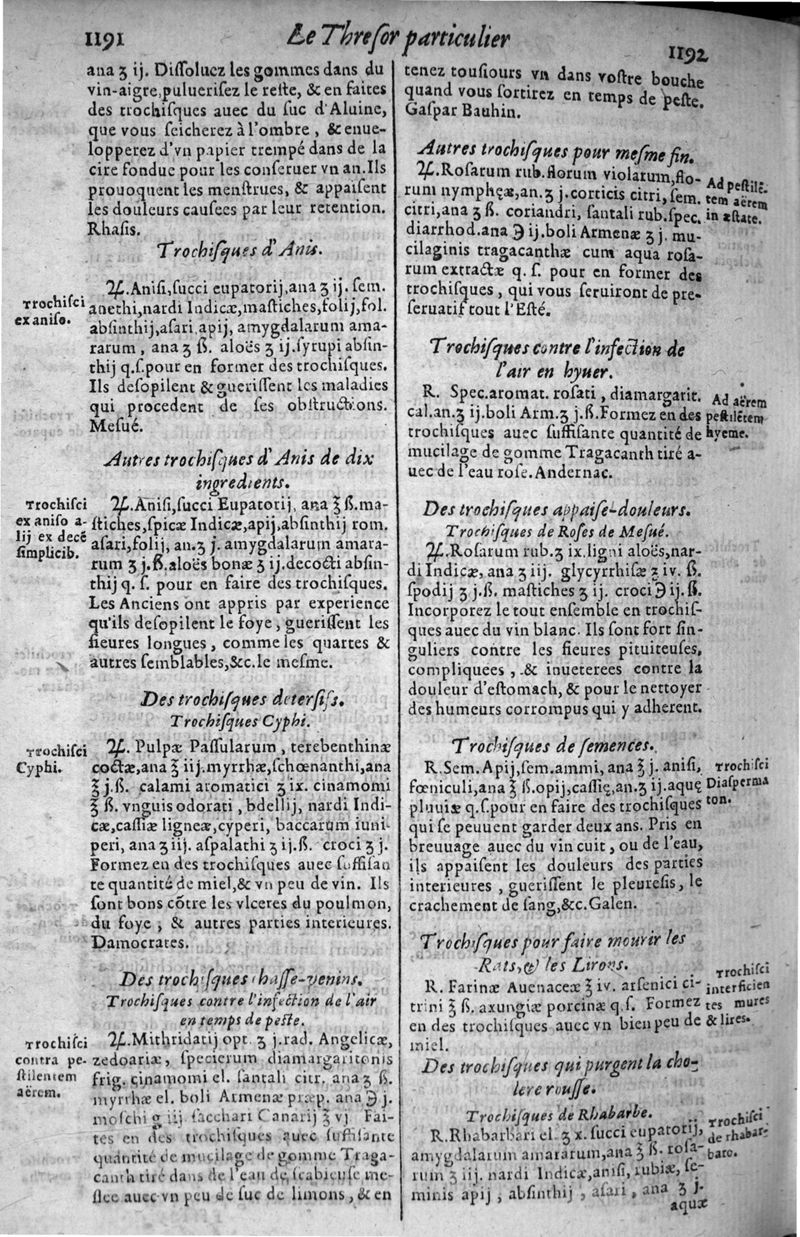 1191
Le Threſor particulier
1192
ana ʒ ij. Diſſoluez les gommes dans du
vin-aigre, pulueriſez le reſte, & en faites
des trochiſques auec du ſuc d'Aluine,
que vous ſeicherez à l'ombre, & enue-
lopperez d'vn papier trempé dans de la
cire fondue pour les conſeruer vn an. Ils
prouoquent les menſtrues, & appaiſent
les douleurs cauſees par leur retention.
Rhaſis.
Trochiſques d'Anis.
Trochiſci
ex aniſo.
℞. Aniſi, ſucci eupatorij, ana ʒ ij. ſem.
anethi, nardi Indicæ, maſtiches, folij, fol.
abſinthij, aſari, apij, amygdalarum ama-
rarum, ana ʒ ß. aloës ʒ ij. ſyrupi abſin-
thij q. ſ. pour en former des trochiſques.
Ils deſopilent & gueriſſent les maladies
qui procedent de ſes obſtructions.
Meſué.
Autres trochiſques d'Anis de dix
ingredients.
Trochiſci
ex aniſo a-
lij ex decē
ſimplicib.
℞. Aniſi, ſucci Eupatorij, ana ℥ ß. ma-
ſtiches, ſpicæ Indicæ, apij, abſinthij rom.
aſari, folij, an. ʒ j. amygdalarum amara-
rum ʒ j. ß. aloës bonæ ℥ ij. decocti abſin-
thij q. ſ. pour en faire des trochiſques.
Les Anciens ont appris par experience
qu'ils deſopilent le foye, gueriſſent les
fieures longues, comme les quartes &
autres ſemblables, &c. le meſme.
Des trochiſques deterſifs.
Trochiſques Cyphi.
Trochiſci
Cyphi.
℞. Pulpæ Paſſularum, terebenthinæ
coctæ, ana ℥ iij. myrrhæ, ſchœnanthi, ana
℥ j. ß. calami aromatici ʒ ix. cinamomi
℥ ß. vnguis odorati, bdellij, nardi Indi-
cæ, caſſiæ ligneæ, cyperi, baccarum iuni-
peri, ana ʒ iij. aſpalathi ʒ ij. ß. croci ʒ j.
Formez en des trochiſques auec ſuffiſan
te quantité de miel, & vn peu de vin. Ils
ſont bons cōtre les vlceres du poulmon,
du foye, & autres parties interieures.
Damocrates.
Des trochiſques chaſſe-venins.
Trochiſques contre l'infection de l'air
en temps de peſte.
Trochiſci
contra pe-
ſtilentem
aërem.
℞. Mithridatij opt. ʒ j. rad. Angelicæ,
zedoariæ, ſpecierum diamargaritonis
frig. cinamomi el. ſantali citr. ana ʒ ß.
myrrhæ el. boli Armenæ præp. ana ℈ j.
moſchi g iij. ſacchari Canarij ℥ vj. Fai-
tes en des trochiſques auec ſuffiſante
quantité de mucilage de gomme Traga-
canth tiré dans de l'eau de ſcabieuſe me-
ſlee auec vn peu de ſuc de limons, & en
tenez touſiours vn dans voſtre bouche
quand vous ſortirez en temps de peſte.
Gaſpar Bauhin.
Autres trochiſques pour meſme fin.
℞. Roſarum rub. florum violarum, flo-
rum nymphęæ, an. ʒ j. corticis citri, ſem.
citri, ana ʒ ß. coriandri, ſantali rub. ſpec.
diarrhod. ana ℈ ij. boli Armenæ ʒ j. mu-
cilaginis tragacanthæ cum aqua roſa-
rum extractæ q. ſ. pour en former des
trochiſques, qui vous ſeruiront de pre-
ſeruatif tout l'Eſté.
Ad peſtilē-
tem aërem
in æſtate.
Trochiſques contre l'infection de
l'air en hyuer.
R. Spec. aromat. roſati, diamargarit.
cal. an. ʒ ij. boli Arm. ʒ j. ß. Formez en des
trochiſques auec ſuffiſante quantité de
mucilage de gomme Tragacanth tiré a-
uec de l'eau roſe. Andernac.
Ad aërem
peſtilētem
hyeme.
Des trochiſques appaiſe-douleurs.
Trochiſques de Roſes de Meſué.
℞. Roſarum rub. ʒ ix. ligni aloës, nar-
di Indicæ, ana ʒ iij. glycyrrhiſæ ʒ iv. ß.
ſpodij ʒ j. ß. maſtiches ʒ ij. croci ℈ ij. ß.
Incorporez le tout enſemble en trochiſ-
ques auec du vin blanc. Ils ſont fort ſin-
guliers contre les fieures pituiteuſes,
compliquees, & inueterees contre la
douleur d'eſtomach, & pour le nettoyer
des humeurs corrompus qui y adherent.
Trochiſques de ſemences.
R. Sem. Apij, ſem. ammi, ana ℥ j. aniſi,
fœniculi, ana ℥ ß. opij, caſſię, an. ʒ ij. aquę
pluuiæ q. ſ. pour en faire des trochiſques
qui ſe peuuent garder deux ans. Pris en
breuuage auec du vin cuit, ou de l'eau,
ils appaiſent les douleurs des parties
interieures, gueriſſent le pleureſis, le
crachement de ſang, &c. Galen.
Trochiſci
Diaſperma
ton.
Trochiſques pour faire mourir les
Rats, & les Lirons.
R. Farinæ Auenaceæ ℥ iv. arſenici ci-
trini ℥ ß. axungiæ porcinæ q. ſ. Formez
en des trochiſques auec vn bien peu de
miel.
Trochiſci
interficien
tes mures
& lires.
Des trochiſques qui purgent la cho-
lere rouſſe.
Trochiſques de Rhabarbe.
R. Rhabarbari el. ʒ x. ſucci eupatorij,
amygdalarum amararum, ana ℥ ß. roſa-
rum ʒ iij. nardi Indicæ, aniſi, rubiæ, ſe-
minis apij, abſinthij, aſari, ana ʒ j.
aquæ
Trochiſci
de rhabar-
baro.